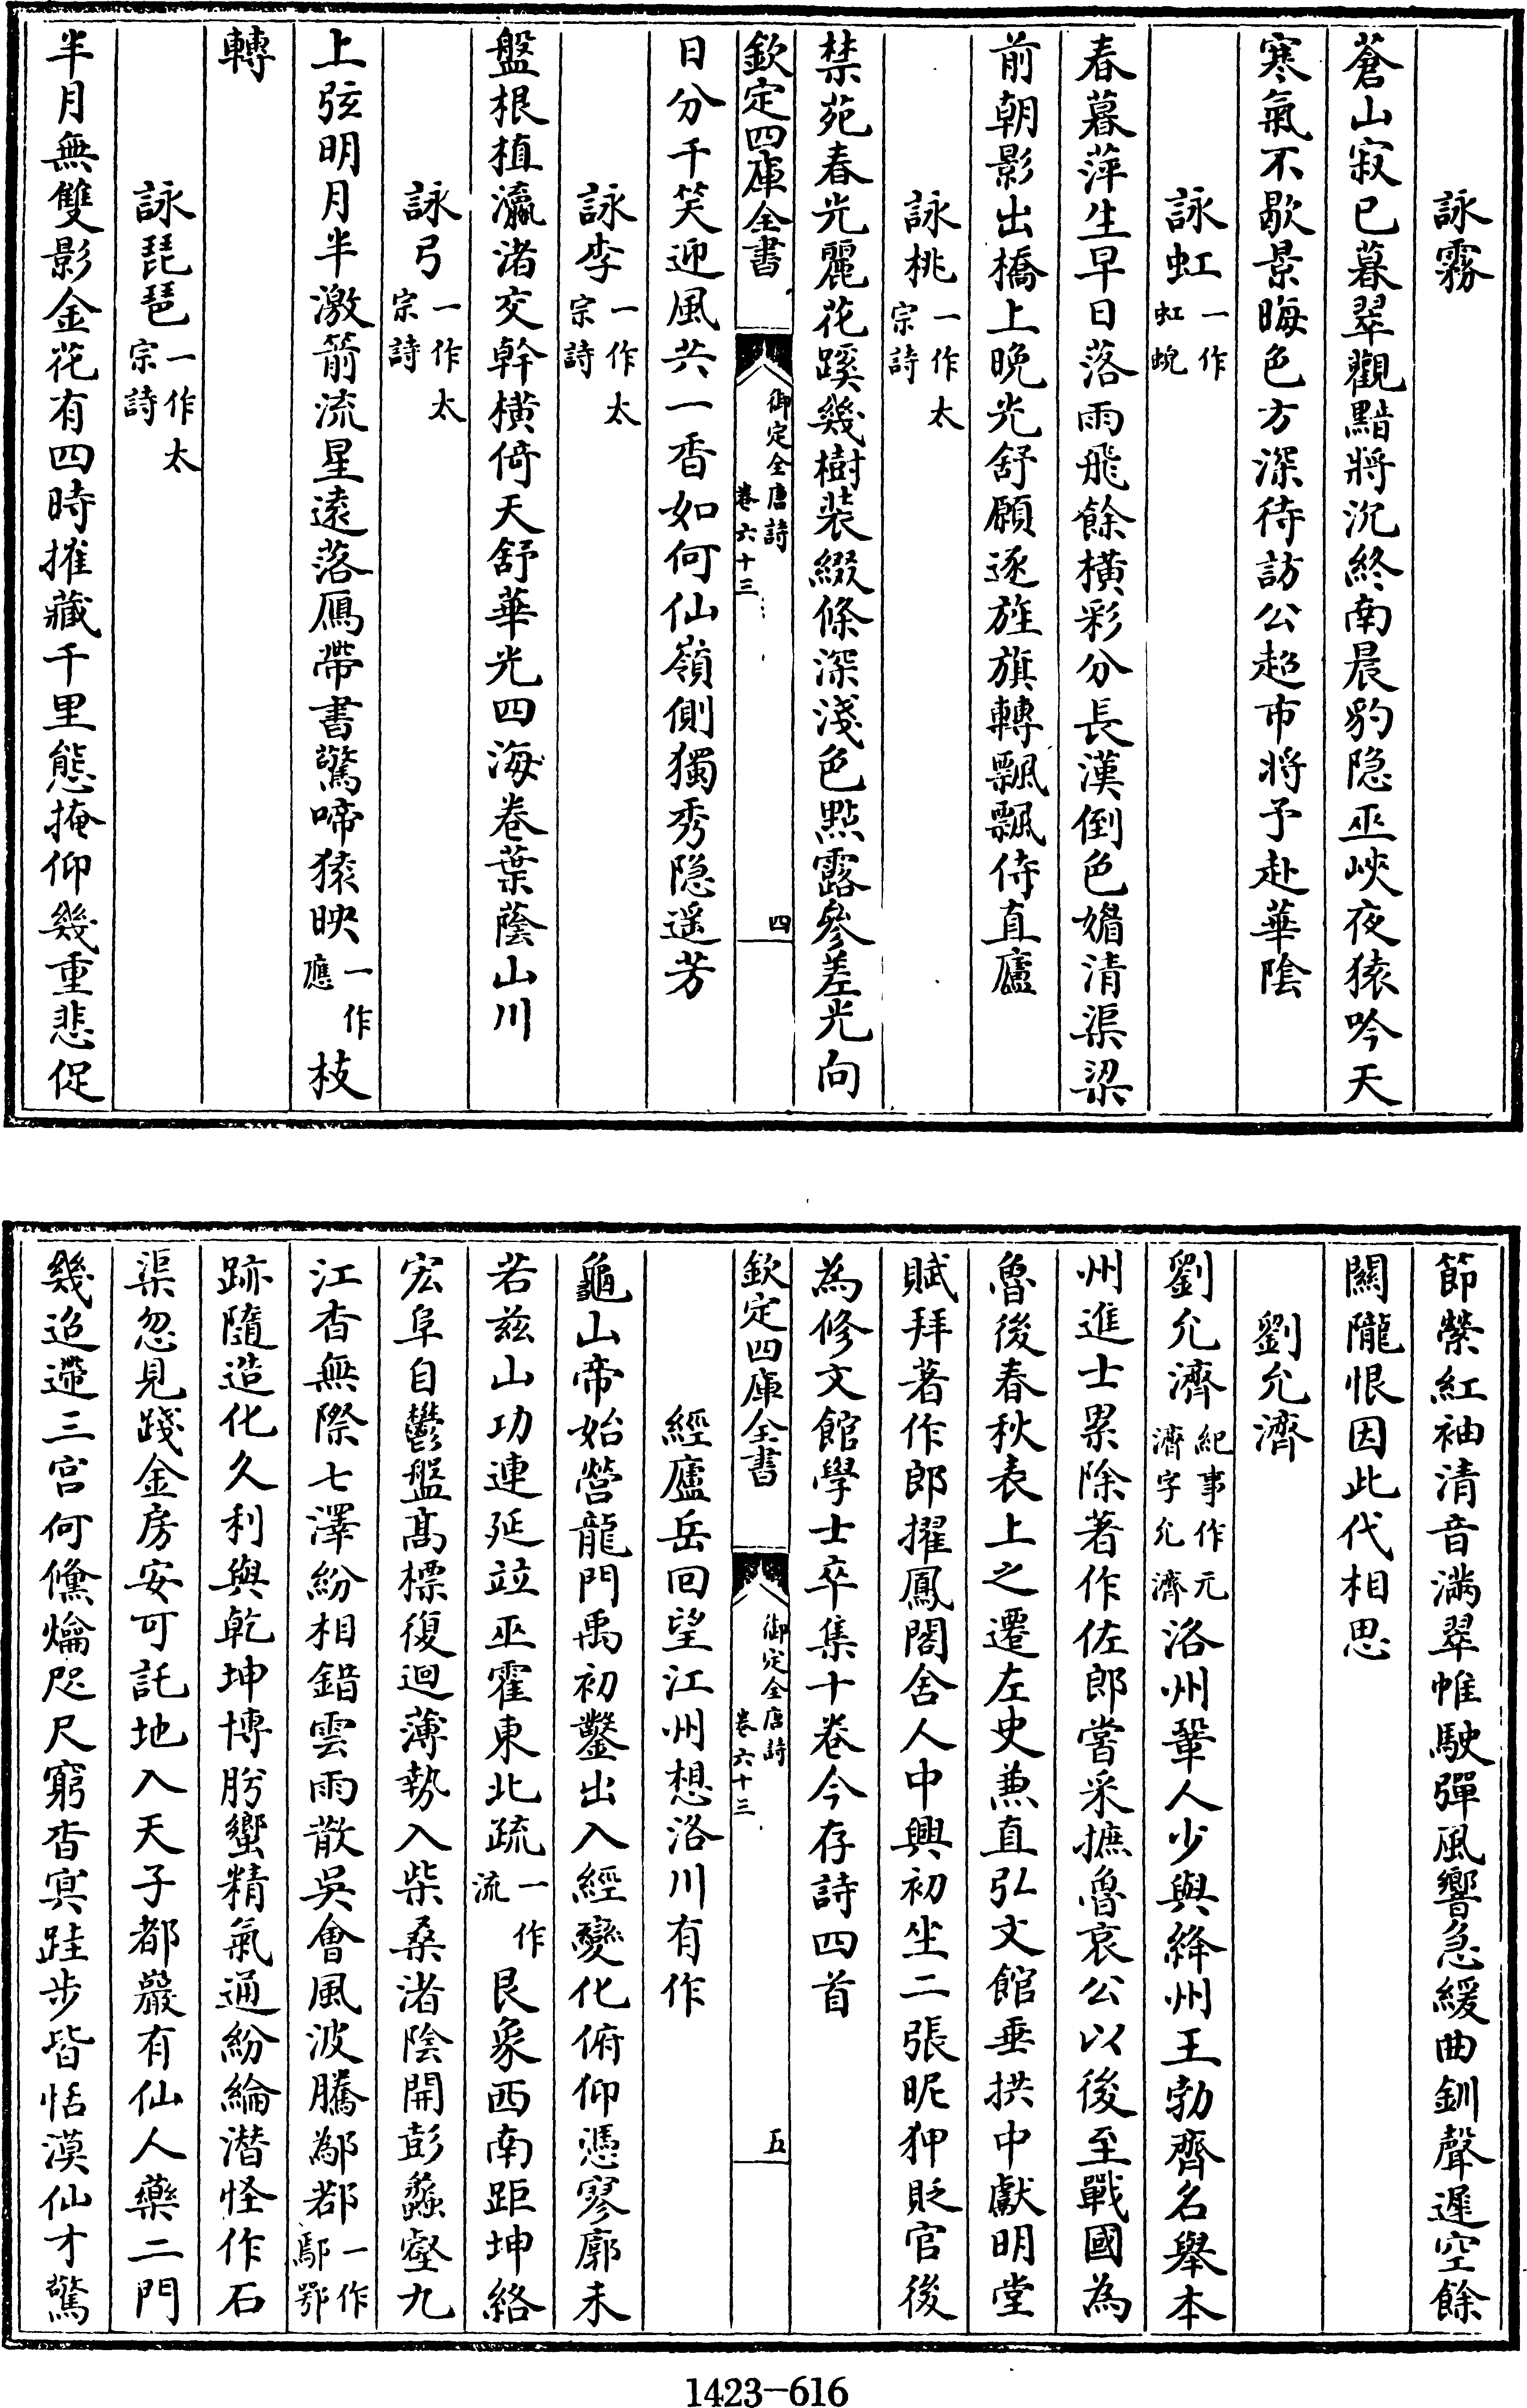 詠霧
蒼山寂已暮翠觀黯將沉終南晨豹隐巫峽夜猿吟天
寒氣不歇景晦色方深待訪公超市將予赴華陰
詠虹一作虹蜺
春暮萍生早日落雨飛餘橫彩分長漢倒色媚清渠梁
前朝影出橋上晚光舒願逐旌旗轉飄飄侍直廬
詠桃一作太宗詩
禁苑春光麗花蹊幾樹裝綴條深淺色點露參差光向
欽定四庫全書 御定全唐詩 卷六十三 四
日分千笑迎風共一香如何仙嶺側獨秀隐遥芳
詠李一作太宗詩
盤根植瀛渚交幹橫倚天舒華光四海卷葉蔭山川
詠弓一作太宗詩
上弦明月半激箭流星遠落鴈帶書驚啼猿映一作應枝
轉
詠琵琶一作太宗詩
半月無雙影金花有四時摧藏千里態掩仰幾重悲促
節縈紅袖清音滿翠帷駛彈風響急緩曲釧聲遲空餘
關隴恨因此代相思
劉允濟
劉允濟紀事作元濟字允濟洛州鞏人少與絳州王勃齊名舉本
州進士累除著作佐郎嘗采摭魯哀公以後至戰國為
魯後春秋表上之遷左史兼直弘文館垂拱中獻明堂
賦拜著作郎擢鳳閣舍人中興初坐二張昵狎貶官後
為修文館學士卒集十卷今存詩四首
欽定四庫全書 御定全唐詩 卷六十三 五
經廬岳回望江州想洛川有作
龜山帝始營龍門禹初鑿出入經變化俯仰憑寥廓未
若兹山功連延竝巫霍東北疏一作流艮象西南距坤絡
宏阜自鬱盤高標復迴薄勢入柴桑渚陰開彭蠡壑九
江杳無際七澤紛相錯雲雨散吳會風波騰鄢鄀一作鄢鄂
跡隨造化久利與乾坤博肹蠁精氣通紛綸潛怪作石
渠忽見踐金房安可託地入天子都巖有仙人藥二門
幾迢遰三宫何儵爚咫尺窮杳冥跬步皆恬漠仙才驚
1423—616